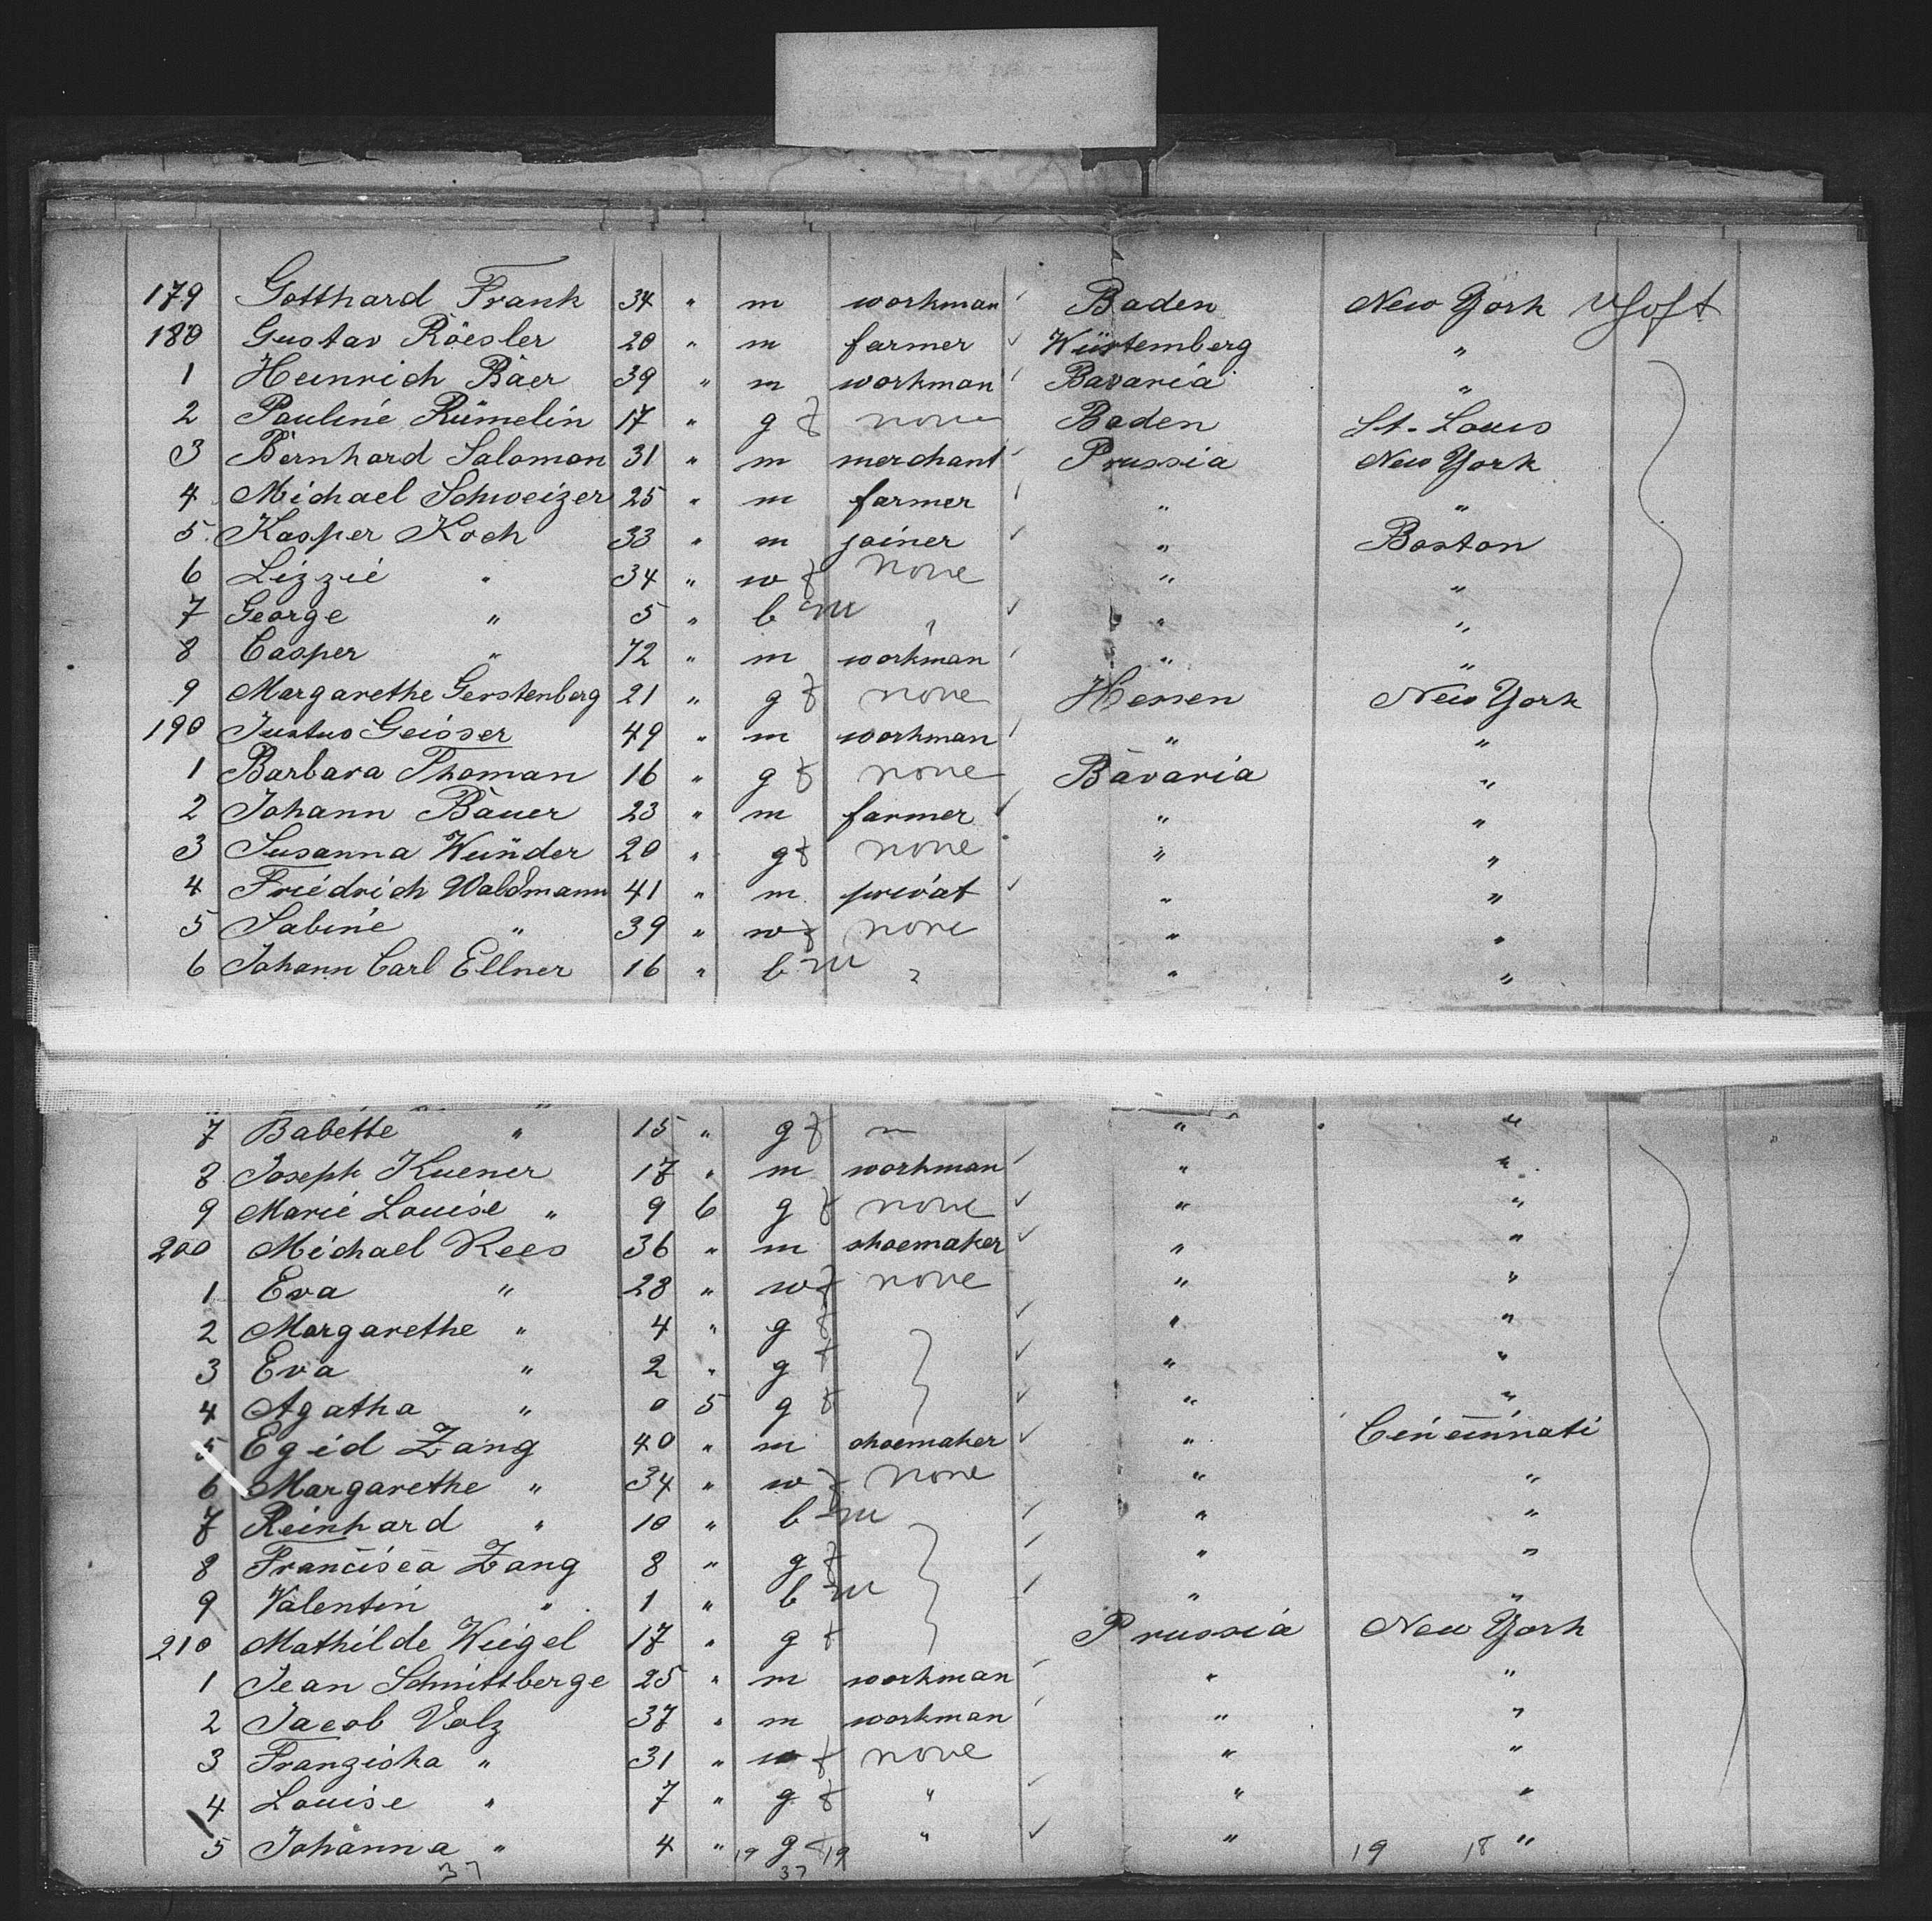 179 Gotthard Frank 34 " m workman Baden New York
180 Gustav Röesler 20 " m farmer Würtemberg "
1 Heinrich Bäer 39 " m workman Bavaria "
2 Pauline Rümelin 17 " g f none Baden St. Louis
3 Bernhard Salomon 31 " m merchant Prussia New York
4 Michael Schweizer 25 " m farmer " "
5 Kasper Koch 33 " m joiner " Boston
6 Lizzie " 34 " w f none " "
7 George " 5 " b m " " "
8 Casper " 72 " m workman " "
9 Margarethe Gerstenberg 21 " g f none Hessen New York
190 Justus Geisser 49 " m workman " "
1 Barbara Thoman 16 " g f none Bavaria "
2 Johann Bauer 23 " m farmer " "
3 Susanna Wünder 20 " g f none " "
4 Friedrich Waldmann 41 " m privat " "
5 Sabine " 39 " w f none " "
6 Johann Carl Ellner 16 " b m " " "
7 Babette " 15 " g f " " "
8 Joseph Kuener 17 " m workman " "
9 Marie Louise " 9 6 g f none " "
200 Michael Rees 36 " m shoemaker " "
1 Eva " 28 " w f none " "
2 Margarethe " 4 " g f " "
3 Eva " 2 " g f " "
4 Agatha " 0 5 g f " "
5 Egid Zang 40 " m shoemaker " Cincinnati
6 Margarethe " 34 " w f none " "
7 Reinhard " 10 " b m " "
8 Francisca Zang 8 " g f " "
9 Valentin " 1 " b m " "
210 Mathilde Weigel 17 " g f Prussia New York
1 Jean Schmittberge 25 " m workman " "
2 Jacob Volz 37 " m workman " "
3 Franziska " 31 " w f none " "
4 Louise " 7 " g f " " "
5 Johanna " 4 " 19 g f 19 " " 19 18 "
37 37